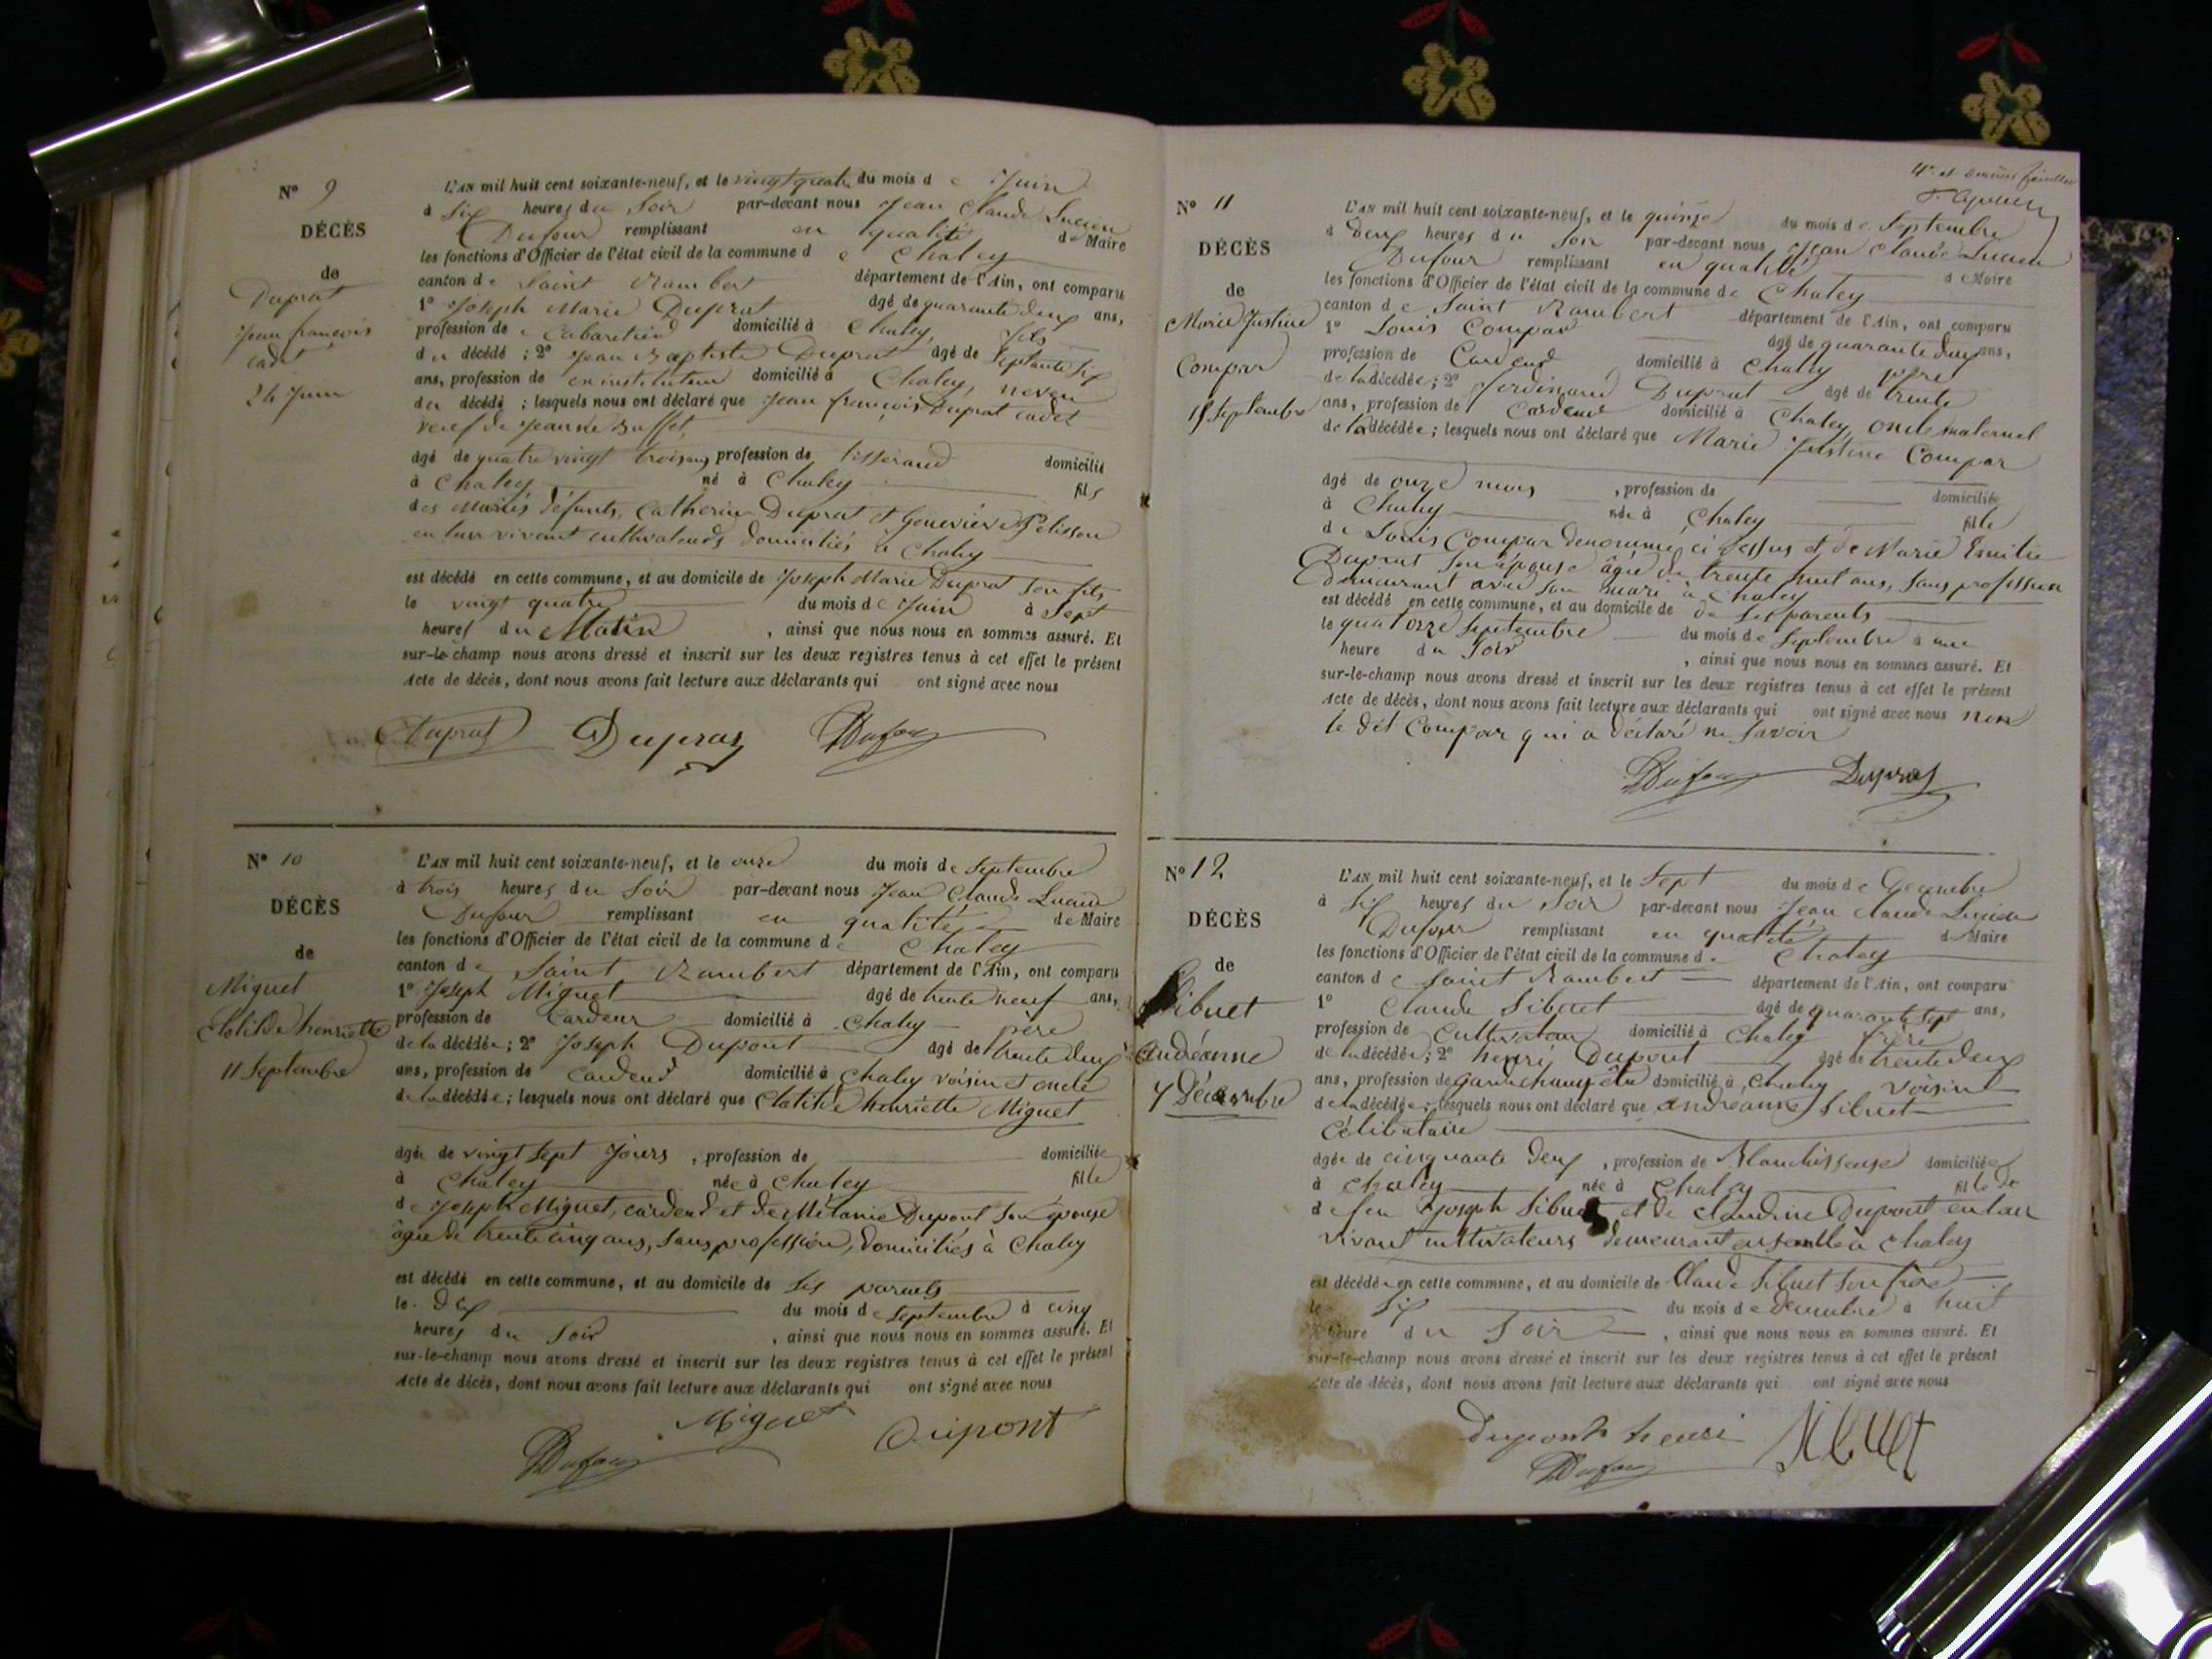 N° 9
DÉCÈS
de
Duprat
Jean françois
cadet
24 Juin
L'AN mil huit cent soixante-neuf, et le vingt quatre du mois de Juin
à Six heures du Soir par-devant nous Jean Claude Lucien
Dufour remplissant en qualité de Maire
les fonctions d'Officier de l'état civil de la commune de Chaley
canton de Saint Rambert département de l'Ain, ont comparu
1° Joseph Marie Duprat âgé de quarante deux ans,
profession de Cabaretier domicilié à Chaley, fils
du décédé ; 2° Jean Baptiste Duprat âgé de Septante Six
ans, profession de en instituteur domicilié à Chaley, neveu
du décédé ; lesquels nous ont déclaré que Jean françois Duprat cadet
veuf de Jeanne Buffet
âgé de quatre vingt trois ans, profession de tisserand domicilié
à Chaley né à Chaley fils
des Mariés défunts, Catherin Duprat et Geneviève Pelisson
en leur vivant cultivateurs domiciliés à Chaley
est décédé en cette commune, et au domicile de Joseph Marie Duprat son fils
le vingt quatre du mois de Juin à Sept
heures du Matin , ainsi que nous nous en sommes assuré. Et
sur-le-champ nous avons dressé et inscrit sur les deux registres tenus à cet effet le présent
Acte de décès, dont nous avons fait lecture aux déclarants qui ont signé avec nous
Duprat Duprat Dufour
N° 10
DÉCÈS
de
Miguet
Clotilde henriette
11 Septembre
L'AN mil huit cent soixante-neuf, et le onze du mois de Septembre
à trois heures du Soir par-devant nous Jean Claude Lucien
Dufour remplissant en qualité de Maire
les fonctions d'Officier de l'état civil de la commune de Chaley
canton de Saint Rambert département de l'Ain, ont comparu
1° Joseph Miguet âgé de trente neuf ans,
profession de Cardeur domicilié à Chaley père
de la décédée ; 2° Joseph Dupont âgé de trente deux
ans, profession de Cardeur domicilié à Chaley voisin et oncle
de la décédée ; lesquels nous ont déclaré que Clotilde henriette Miguet
âgée de vingt Sept Jours , profession de domiciliée
à Chaley née à Chaley fille
de Joseph Miguet, cardeur et de Mélanie Dupont Son épouse
âgée de trente cinq ans, Sans profession, domiciliés à Chaley
est décédé en cette commune, et au domicile de Ses parents
le dix du mois de Septembre à cinq
heures du Soir , ainsi que nous nous en sommes assuré. Et
sur-le-champ nous avons dressé et inscrit sur les deux registres tenus à cet effet le présent
Acte de décès, dont nous avons fait lecture aux déclarants qui ont signé avec nous
Miguet Dupont
Dufour
4e et dernier feuillet
N° 11
DÉCÈS
de
Marie Justine
Compar
15 Septembre
L'AN mil huit cent soixante-neuf, et le quinze du mois de Septembre
à deux heures du Soir par-devant nous Jean Claude Lucien
Dufour remplissant en qualité d Maire
les fonctions d'Officier de l'état civil de la commune de Chaley
canton de Saint Rambert département de l'Ain, ont comparu
1° Louis Compar âgé de quarante deux ans,
profession de Cardeur domicilié à Chaley père
de la décédée ; 2° ferdinand Duprat âgé de trente
ans, profession de Cardeur domicilié à Chaley, oncle maternel
de la décédée ; lesquels nous ont déclaré que Marie Justine Compar
âgé de onze mois , profession de domiciliée
à Chaley née à Chaley fille
de Louis Compar dénommé ci dessus et de Marie Emilie
Duprat Son épouse âgée de trente huit ans, Sans profession
demeurant avec Son mari à Chaley
est décédé en cette commune, et au domicile de de Ses parents
le quatorze Septembre du mois de Septembre à une
heure du Soir , ainsi que nous nous en sommes assuré. Et
sur-le-champ nous avons dressé et inscrit sur les deux registres tenus à cet effet le présent
Acte de décès, dont nous avons fait lecture aux déclarants qui ont signé avec nous non
le dit Compar qui a déclaré ne Savoir
Dufour Duprat
N° 12
DÉCÈS
de
Sibuet
andréanne
7 Décembre
L'AN mil huit cent soixante-neuf, et le Sept du mois de Décembre
à Six heures du Soir par-devant nous Jean Claude Lucien
Dufour remplissant en qualité d Maire
les fonctions d'Officier de l'état civil de la commune de Chaley
canton de Saint Rambert département de l'Ain, ont comparu
1° Claude Sibuet âgé de quarante Sept ans,
profession de Cultivateur domicilié à Chaley frère
de la décédée ; 2° henry Dupont âgé de trente deux
ans, profession de garde champêtre domicilié à Chaley voisin
de la décédée ; lesquels nous ont déclaré que andréanne Sibuet
Célibataire
âgée de cinquante deux , profession de Blanchisseuse domiciliée
à Chaley née à Chaley fille de
de feu Joseph Sibuet et de Claudine Dupont en leur
vivant cultivateurs demeurant ensemble à Chaley
est décédée en cette commune, et au domicile de Claude Sibuet Son frère
le Six du mois de décembre à huit
heure du Soir , ainsi que nous nous en sommes assuré. Et
sur-le-champ nous avons dressé et inscrit sur les deux registres tenus à cet effet le présent
Acte de décès, dont nous avons fait lecture aux déclarants qui ont signé avec nous
Dupont henri Sibuet
Dufour